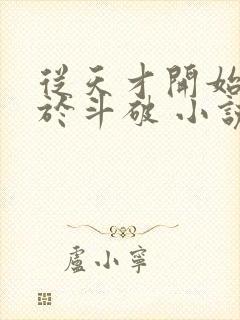 從天才開始
於斗破 小說
盧小寧